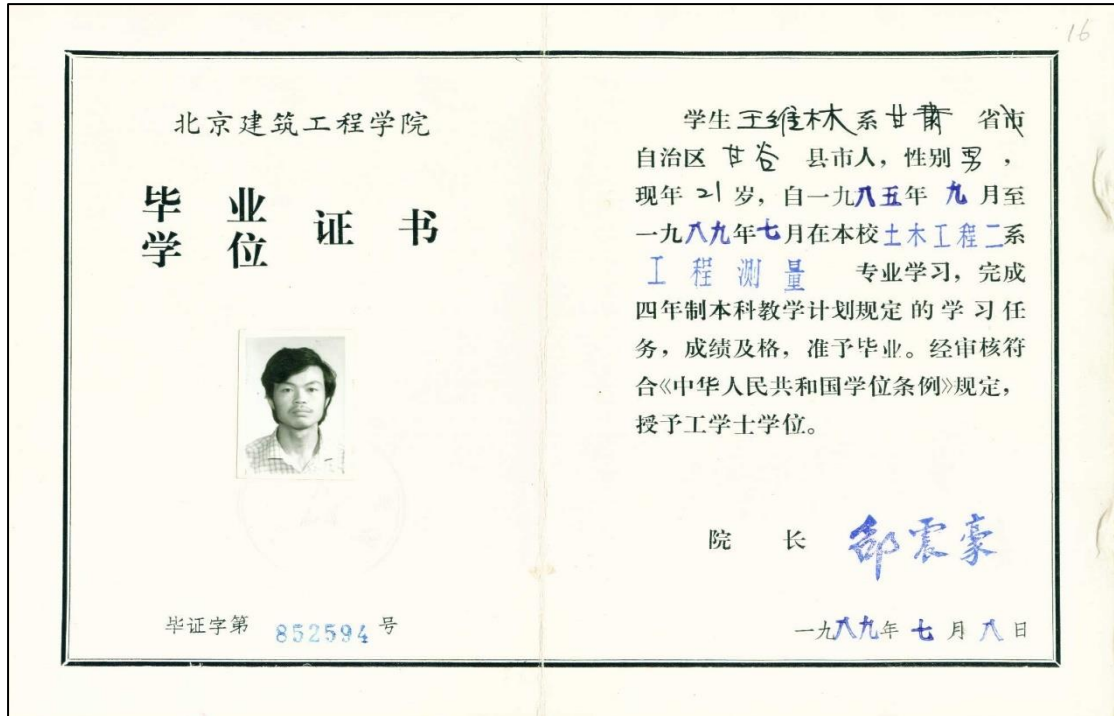 16
北京建筑工程学院
毕业
学位
证书
毕证字第 852594 号
学生王维林系甘肃 省市
自治区 甘谷 县市人，性别男，
现年21岁，自一九八五年九月至
一九八九年七月在本校土木工程二系
工程测量 专业学习，完成
四年制本科教学计划规定的学习任
务，成绩及格，准予毕业。经审核符
合《中华人民共和国学位条例》规定，
授予工学士学位。
院 长 邵震豪
一九八九年七月八日